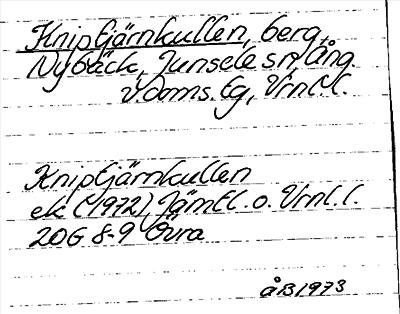 Kniptjärnkullen, berg,
Nybäck, Junsele sn, Ång.
v. doms. lg, Vrnl. l.
Kniptjärnkullen
ek (1972) Jämtl. o. Vrnl. l.
20G 8-9 Övra
åB1973